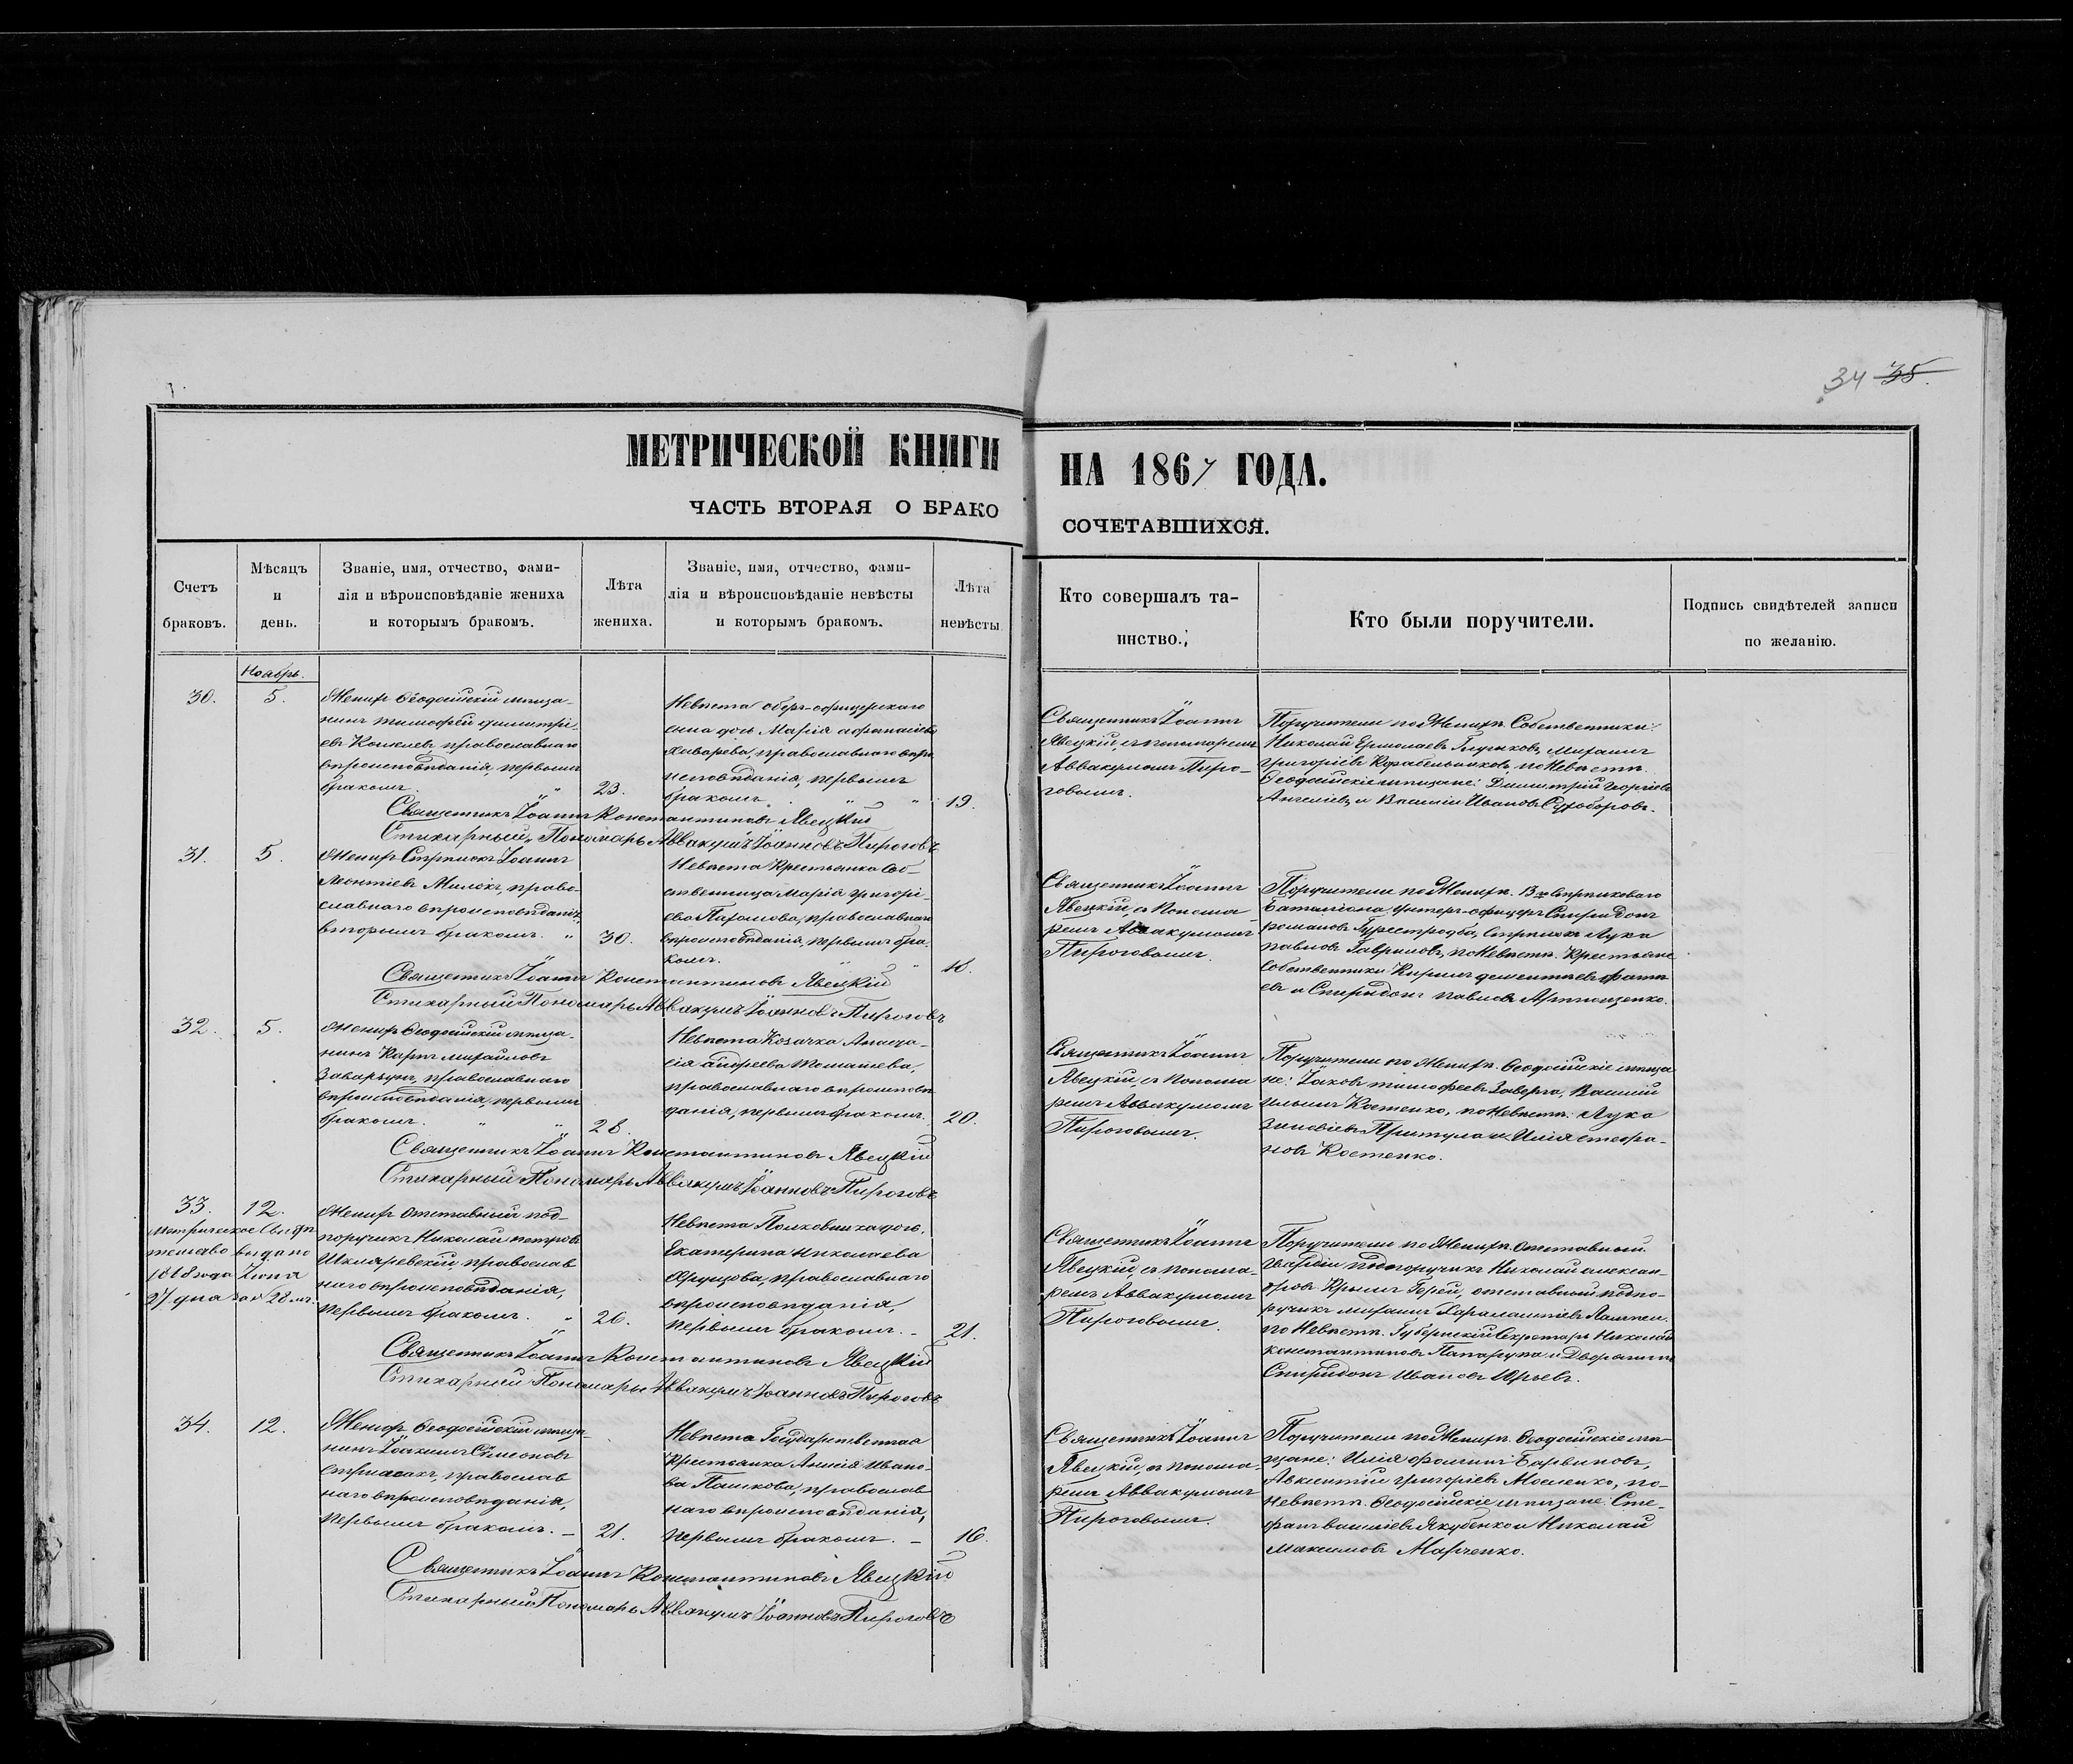 34 35.
МЕТРИЧЕСКОЙ КНИГИ НА 1867 ГОДА.
ЧАСТЬ ВТОРАЯ О БРАКО СОЧЕТАВШИХСЯ.
Счетъ браковъ.
Мѣсяцъ и день.
Званіе, имя, отчество, фами-
лія и вѣроисповѣданіе жениха
и которымъ бракомъ.
Лѣта жениха.
Званіе, имя, отчество, фами-
лія и вѣроисповѣданіе невѣсты
и которымъ бракомъ.
Лѣта невѣсты
Кто совершалъ та-
инство.
Кто были поручители.
Подпись свидѣтелей записи
по желанію.
Ноябрь.
30.
5.
Женихъ Ѳеодосійскій мѣща-
нинъ Тимофей Димитрі-
евъ православнаго
вѣроисповѣданія, первымъ
бракомъ.
23.
Невѣста оберъ-офицерскаго
сына дочь Марія
православнаго вѣро
исповѣданія, первымъ
бракомъ
19.
Священникъ Іоаннъ
Явецкій, съ пономаремъ
Аввакумомъ Пиро-
говымъ.
Поручители по Женихѣ. Собственники:
Николай Ермолаевъ Глушковъ, Михаилъ
Григоріевъ Корабельниковъ, по Невѣстѣ.
Ѳеодосійскіе мѣщане: Димитрій Георгіевъ
и Василій Ивановъ
Священникъ Іоаннъ Константиновъ Явецкій
Стихарный Пономарь Аввакумъ Іоанновъ Пироговъ
31.
5.
Женихъ Стрѣлокъ Іоаннъ
Леонтіевъ право-
славнаго вѣроисповѣданія,
вторымъ бракомъ.
30.
Невѣста Крестьянка Соб-
ственница Марія Григорі-
ева православнаго
вѣроисповѣданія, первымъ бра-
комъ.
18.
Священникъ Іоаннъ
Явецкій, съ Понома-
ремъ Аввакумомъ
Пироговымъ.
Поручители по Женихѣ. 13го Стрѣлковаго
Баталіона Унтеръ-офицеръ Спиридонъ
Романовъ стрѣлокъ Лука
Павловъ Гавриловъ, по Невѣстѣ. Крестьяне
Собственники Кирилъ Дементіевъ
и Спиридонъ Павловъ
Священникъ Іоаннъ Константиновъ Явецкій
Стихарный Пономарь Аввакумъ Іоанновъ Пироговъ
32.
5.
Женихъ Ѳеодосійскій мѣща-
нинъ Карпъ Михайловъ
православнаго
вѣроисповѣданія, первымъ
бракомъ.
28.
Невѣста Козачка Анаста-
сія Андреева
православнаго вѣроисповѣ-
данія, первымъ бракомъ.
20.
Священникъ Іоаннъ
Явецкій, съ Понома
ремъ Аввакумомъ
Пироговымъ.
Поручители по Женихѣ. Ѳеодосійскіе мѣща
не: Іаковъ Тимофеевъ Василій
Ильинъ Костенко, по Невѣстѣ: Лука
Зиновіевъ Притула и Илія Стефа-
новъ Костенко.
Священникъ Іоаннъ Константиновъ Явецкій
Стихарный Пономарь Аввакумъ Іоанновъ Пироговъ
33.
12.
Метрическое Свидѣ
тельство выдано
года Іюня
27 дня за № 28
Женихъ Отставный под-
поручикъ Николай Петровъ
Шкляревскій, православ
наго вѣроисповѣданія,
первымъ бракомъ.
26.
Невѣста Полковника дочь,
Екатерина Николаева
православнаго
вѣроисповѣданія,
первымъ бракомъ.
21.
Священникъ Іоаннъ
Явецкій, съ Понома-
ремъ Аввакумомъ
Пироговымъ.
Поручители по Женихѣ. Отставный
Гвардіи подпоручикъ Николай Алексан-
дровъ Крымъ Гирей, отставный подпо-
ручикъ Михаилъ Харалампіевъ
по Невѣстѣ. Губернскій Секретарь Николай
Константиновъ и Дворянинъ
Спиридонъ Ивановъ Юрьевъ.
Священникъ Іоаннъ Константиновъ Явецкій
Стихарный Пономарь Аввакумъ Іоанновъ Пироговъ
34.
12.
Женихъ Ѳеодосійскій мѣща-
нинъ Іоакимъ Симеоновъ
православ
наго вѣроисповѣданія,
первымъ бракомъ.
21.
Невѣста Государственная
Крестьянка Анисія Ивано-
ва Пашкова, православ
наго вѣроисповѣданія,
первымъ бракомъ.
16.
Священникъ Іоаннъ
Явецкій, съ Понома-
ремъ Аввакумомъ
Пироговымъ.
Поручители по Женихѣ. Ѳеодосійскіе мѣ-
щане: Илія Фоминъ
Авксентій Григоріевъ Мосленко, по-
невѣстѣ. Ѳеодосійскіе мѣщане: Сте-
фанъ Василіевъ Якубенко и Николай
Максимовъ Марченко.
Священникъ Іоаннъ Константиновъ Явецкій
Стихарный Пономарь Аввакумъ Іоанновъ Пироговъ